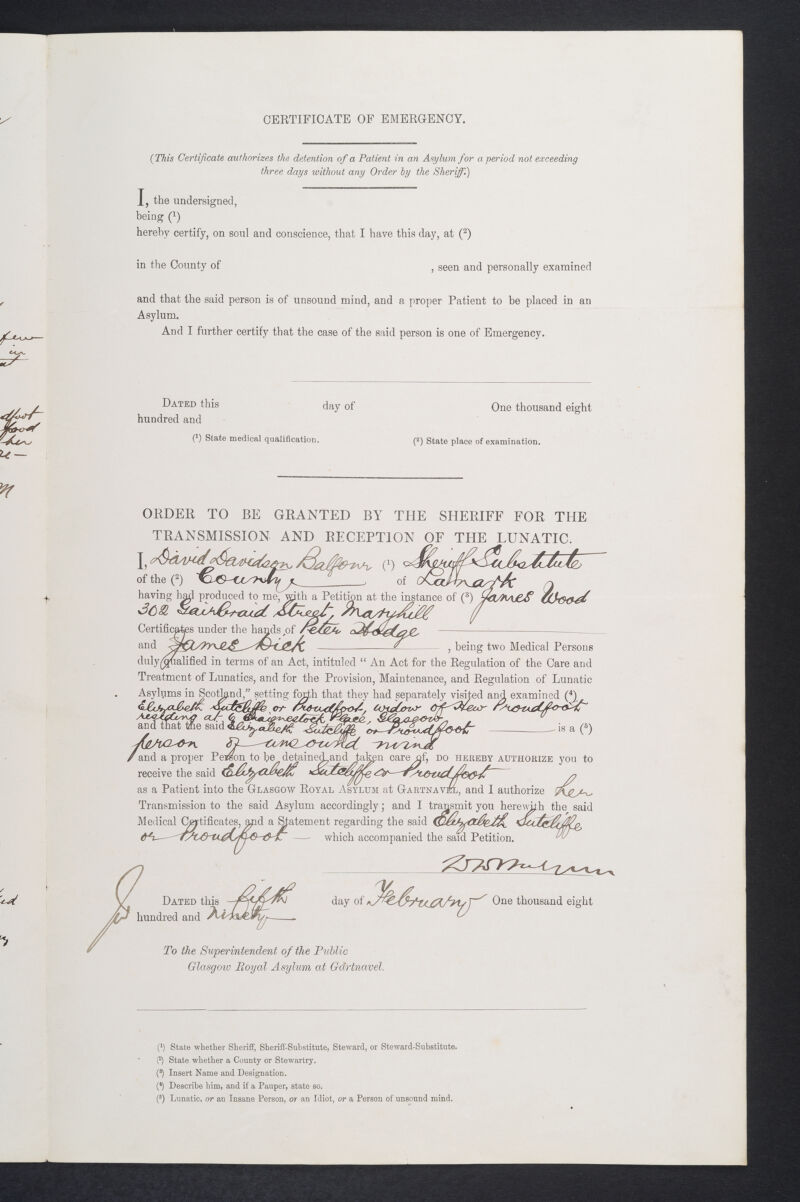 CERTIFICATE OF EMERGENCY.
(This Certificate authorizes the detention of a Patient in an Asylum for a period not exceeding
three days without any Order by the Sheriff.)
I, the undersigned,
being (¹)
hereby certify, on soul and conscience, that I have this day, at (²)
in the County of , seen and personally examined
and that the said person is of unsound mind, and a proper Patient to be placed in an
Asylum.
And I further certify that the case of the said person is one of Emergency.
DATED this day of One thousand eight
hundred and
(¹) State medical qualification. (²) State place of examination.
ORDER TO BE GRANTED BY THE SHERIFF FOR THE
TRANSMISSION AND RECEPTION OF THE LUNATIC.
I, David Davidson Balfour (¹) Sheriff Substitute
of the (²) County of Lanark
having had produced to me, with a Petition at the instance of (³) James Wood
302 Gairbraid Street, Maryhill
Certificates under the hands of Peter Hodge
and James Dick , being two Medical Persons
duly qualified in terms of an Act, intituled “ An Act for the Regulation of the Care and
Treatment of Lunatics, and for the Provision, Maintenance, and Regulation of Lunatic
Asylums in Scotland,” setting forth that they had separately visited and examined (⁴)
Elizabeth Sutcliffe or Proudfoot, widow of Hew Proudfoot
residing at 6 Craignestock Place, Glasgow,
and that the said Elizabeth Sutcliffe or Proudfoot is a (⁵)
person of unsound mind
and a proper Person to be detained and taken care of, DO HEREBY AUTHORIZE you to
receive the said Elizabeth Sutcliffe or Proudfoot
as a Patient into the GLASGOW ROYAL ASYLUM at GARTNAVEL, and I authorize her
Transmission to the said Asylum accordingly; and I transmit you herewith the said
Medical Certificates, and a Statement regarding the said Elizabeth Sutcliffe
or Proudfoot — which accompanied the said Petition.
DATED this fifth day of February One thousand eight
hundred and ninety
To the Superintendent of the Public
Glasgow Royal Asylum at Gartnavel.
(¹) State whether Sheriff, Sheriff-Substitute, Steward, or Steward-Substitute.
(²) State whether a County or Stewartry.
(³) Insert Name and Designation.
(⁴) Describe him, and if a Pauper, state so.
(⁵) Lunatic, or an Insane Person, or an Idiot, or a Person of unsound mind.